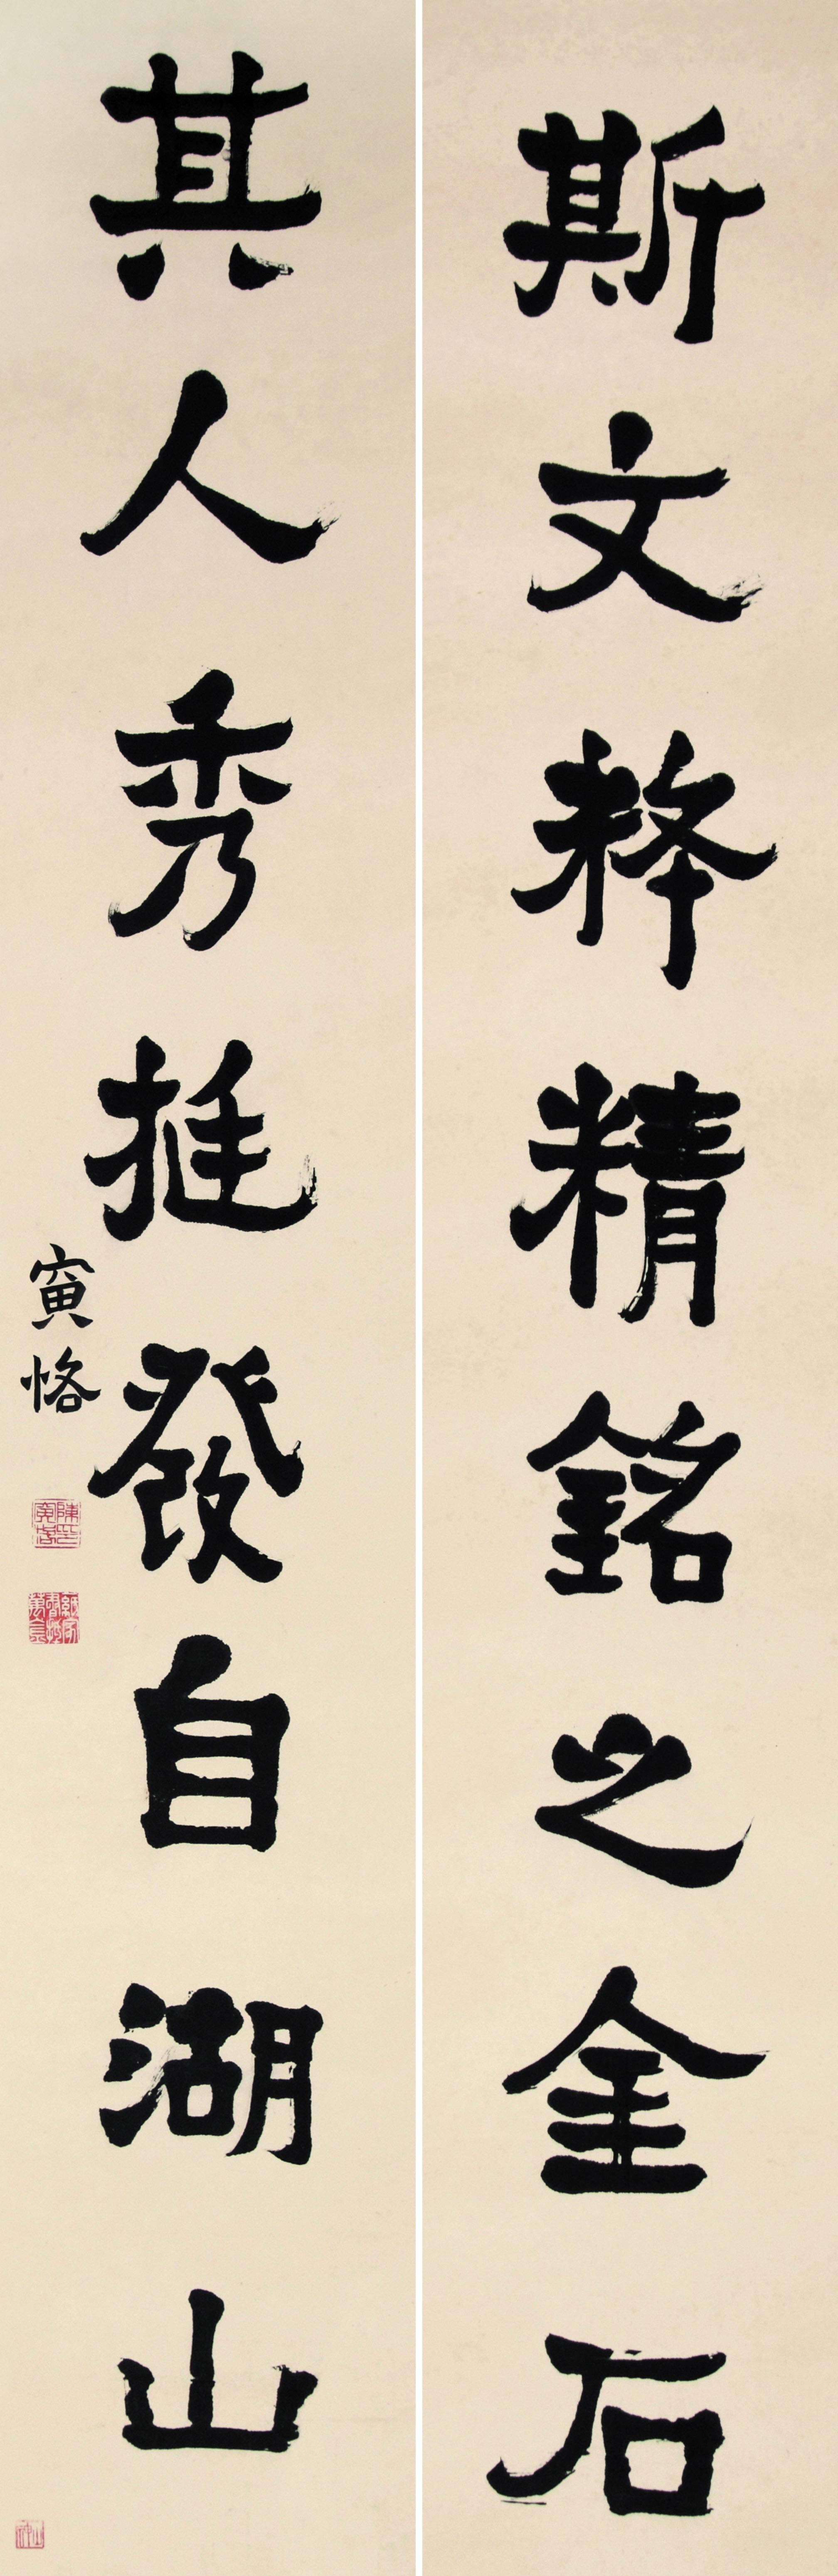 斯文粹精銘之金石
其人秀挺發自湖山
寅恪